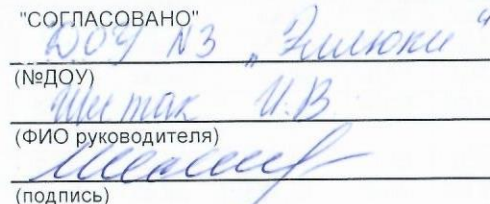 "СОГЛАСОВАНО"
ДОУ №3 „
(№ДОУ)
И.В
(ФИО руководителя)
(подпись)